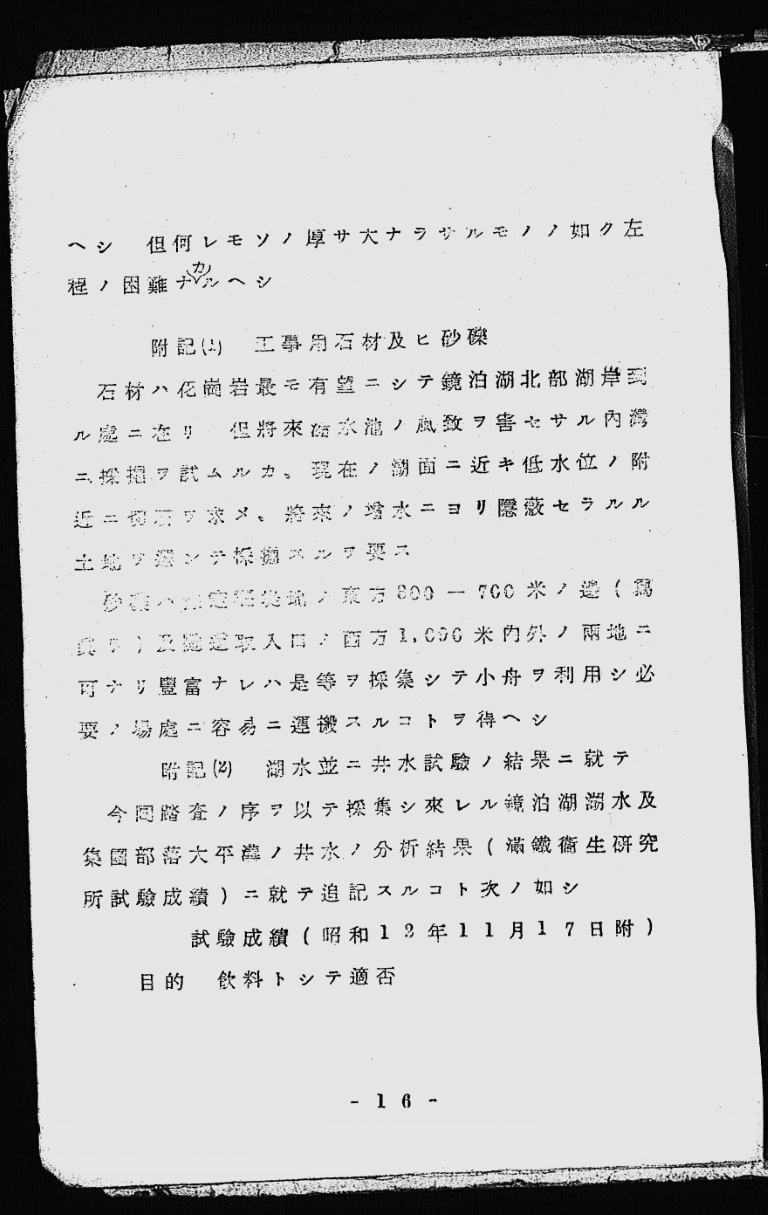 ヘシ 但何レモソノ厚サ大ナラサルモノノ如ク左
程ノ困難ナカルヘシ
附記(1) 工事用石材及ヒ砂礫
石材ハ花崗岩最モ有望ニシテ鏡泊湖北部湖岸到
ル處ニ在リ 但將來 水池ノ風致ヲ害セサル內灣
ニ採掘ヲ試ムルカ、現在ノ湖面ニ近キ低水位ノ附
近ニ 石ヲ求メ、將來ノ增水ニヨリ隱蔽セラルル
土地ヲ選ンテ採掘スルヲ要ス
砂礫ハ 地ノ東方600—700米ノ邊(寫
眞 )及隧道取入口ノ西方1,000米內外ノ兩地ニ
可ナリ豐富ナレハ是等ヲ採集シテ小舟ヲ利用シ必
要ノ場處ニ容易ニ運搬スルコトヲ得ヘシ
附記(2) 湖水並ニ井水試驗ノ結果ニ就テ
今回踏査ノ序ヲ以テ採集シ來レル鏡泊湖湖水及
集團部落大平溝ノ井水ノ分析結果(滿鐵衞生硏究
所試驗成績)ニ就テ追記スルコト次ノ如シ
試驗成績(昭和12年11月17日附)
目的 飮料トシテ適否
- 16 -